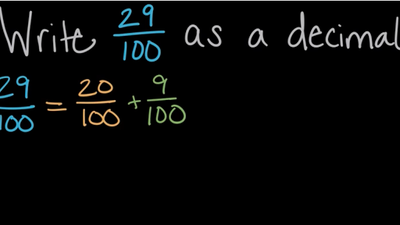 Write 29/100 as a decimal
29/100 = 20/100 + 9/100